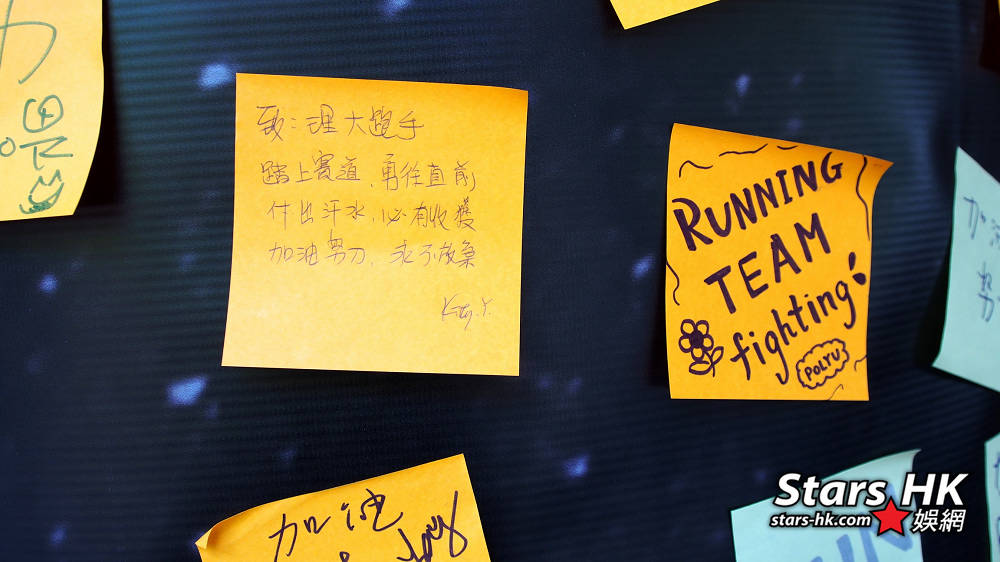 力
致：理大跑手
踏上賽道，勇往直前
付出汗水，必有收獲
加油努力，永不放棄
Kitty.Y.
RUNNING
TEAM
fighting
POLYU
加油
努
加油
Stars HK
stars-hk.com
娛網